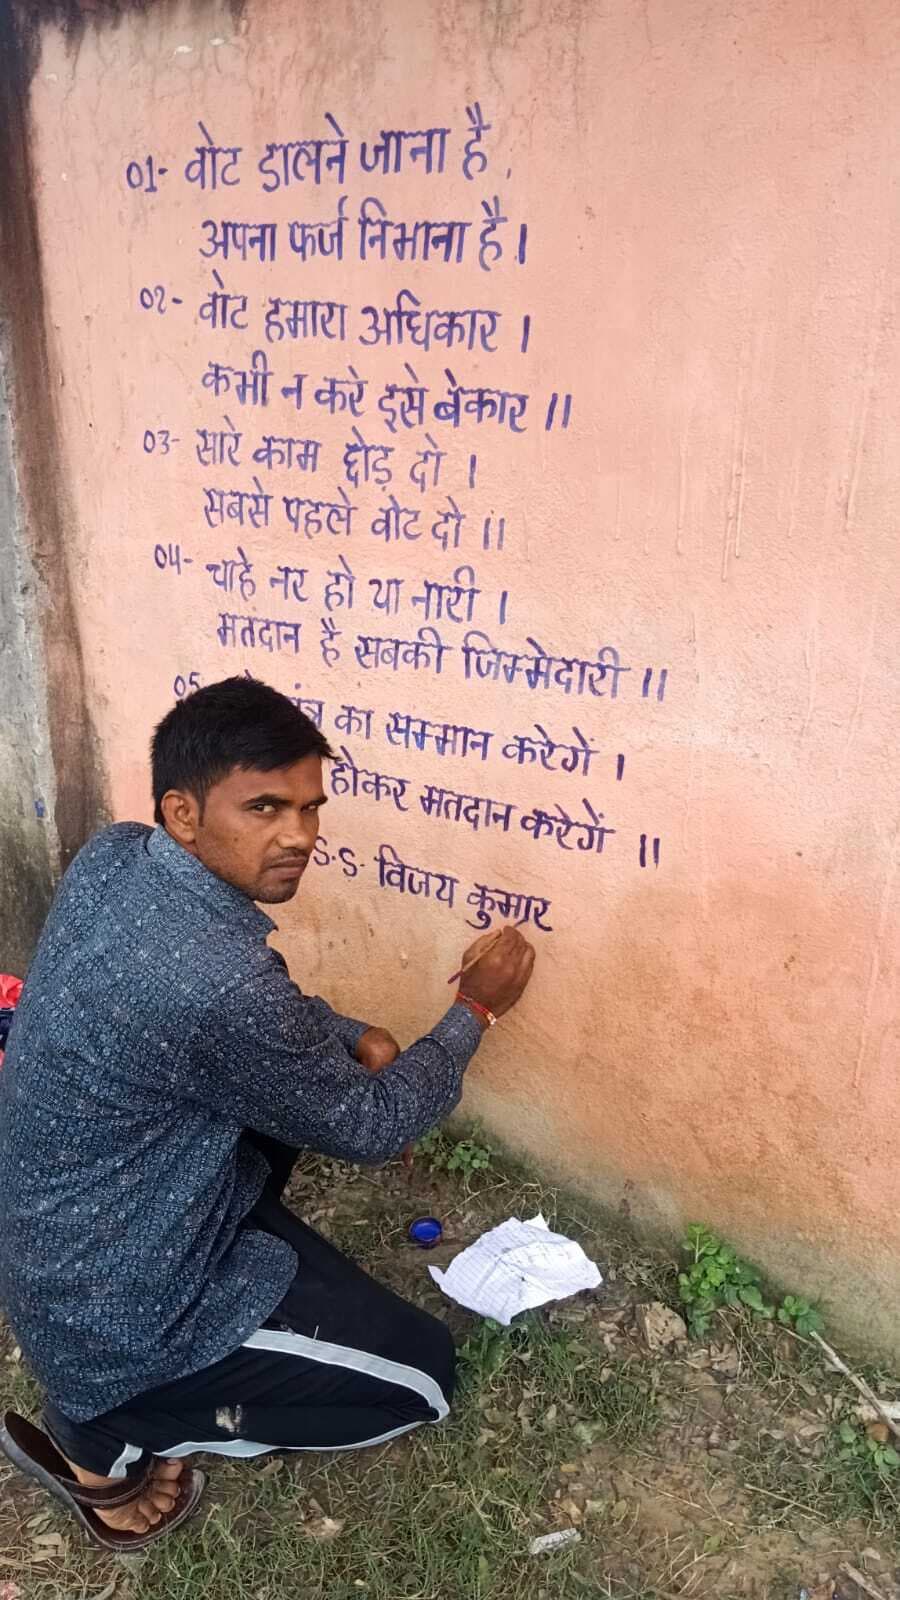 01- वोट डालने जाना है,
अपना फर्ज निभाना है।
02- वोट हमारा अधिकार ।
कभी न करे इसे बेकार ॥
03- सारे काम छोड़ दो ।
सबसे पहले वोट दो ॥
04- चाहे नर हो या नारी ।
मतंदान है सबकी जिम्मेदारी ॥
05 का सम्मान करेगें ।
होकर मतदान करेगें ॥
S.S. विजय कुमार